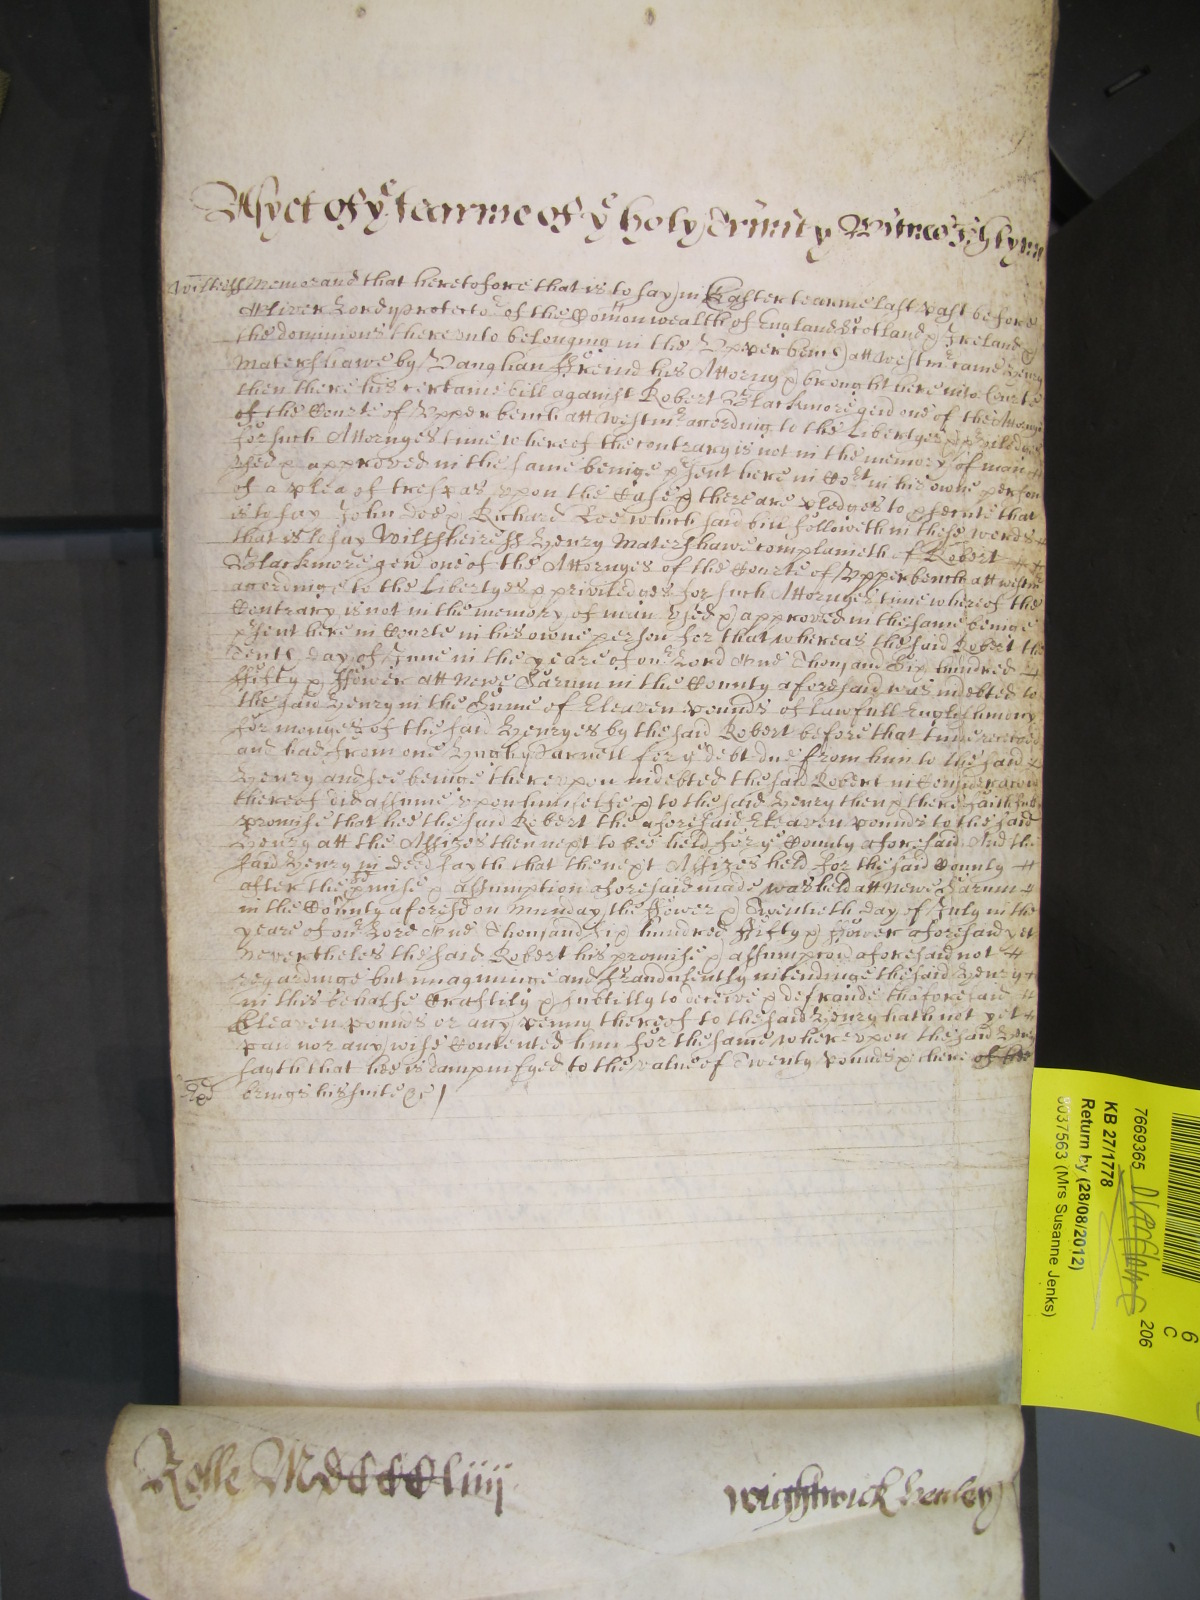 As yet of ye tearme of ye holy Trinity Witnes John Glynn
Wiltess Memorand that heretofore that is to say in Easter tearme last past before
Oliver Lord Protector of the Comonwealth of England Scotland & Ireland &
the dominions thereunto belonging in the Upper bench att Westmr came Henry
Matershawe by Vaughan Freind his Attorny & brought here into Courte
then there his certaine bill against Robert Blackmore gend one of the Attornyes
of the Courte of Upper bench att Westmr acording to the Libertyes & priviledges
for such Attornyes tyme whereof the contrary is not in the memory of man
Used & approved in the same beinge psent here in Cort in his owne person
of a plea of trespas upon the Case & there are pledges to psecute that
is to say John Doe & Richard Roe which said bill followeth in these words
that is to say Wiltsheire ss Henry Matershawe complaineth of Robert
Blackmore gen one of the Attornyes of the Courte of Upper bench att Westmr
acordinge to the Libertyes & priviledges for such Attornyes time whereof the
Contrary is not in the memory of man Used & approved in the same beinge
psent here in Courte in his owne person for that whereas the said Robert the
Tenth day of June in the yeare of our Lord One Thousand Six hundred
Fifty & Fower att Newe Sarum in the County aforesaid was indebted to
the said Henry in the Sume of Eleaven pounds of lawfull English mony
for monyes of the said Henryes by the said Robert before that time received
and had from one Hugh Parnell for ye debt due from him to the said
Henry and soe beinge thereupon indebted the said Robert in Consideracon
thereof did assume upon himselfe & to the said Henry then & there faithfully
promise that hee the said Robert the aforesaid Eleaven pounds to the said
Henry att the Assizes then next to bee held for ye County aforesaid And the
said Henry in Deed sayth that the next Assizes held for the said County
after the pmise & assumption aforesaid made was held att Newe Sarum
in the County aforesd on Munday the Fower & Twentieth day of July in the
yeare of our Lord One Thousand Six hundred Fifty & Fower aforesaid yet
Nevertheles the said Robert his promise & assumpcon aforesaid not
regardinge but imagininge and fraudulently intendinge the said Henry
in this behalfe Craftily & subtilly to deceive & defraude thaforesaid
Eleaven pounds or any penny thereof to the said Henry hath not yet
paid nor any wise Contented him for the same whereupon the said Henry
sayth that hee is dampnifyed to the value of Twenty pounds & there
brings his suite &c
Rolle MdCCCCliiij
Wightwick Henley
7669365
KB 27/1778
Return by (28/08/2012)
8037563 (Mrs Susanne Jenks)
206
6
C